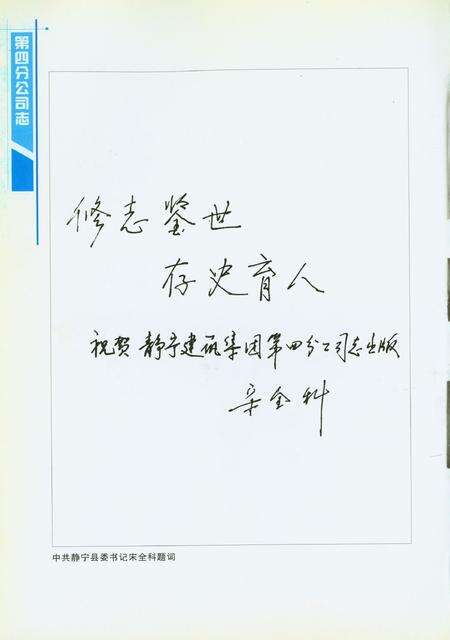 第四分公司志
修志鉴世
存史育人
祝贺静宁建筑集团第四分公司志出版
宋全科
中共静宁县委书记宋全科题词